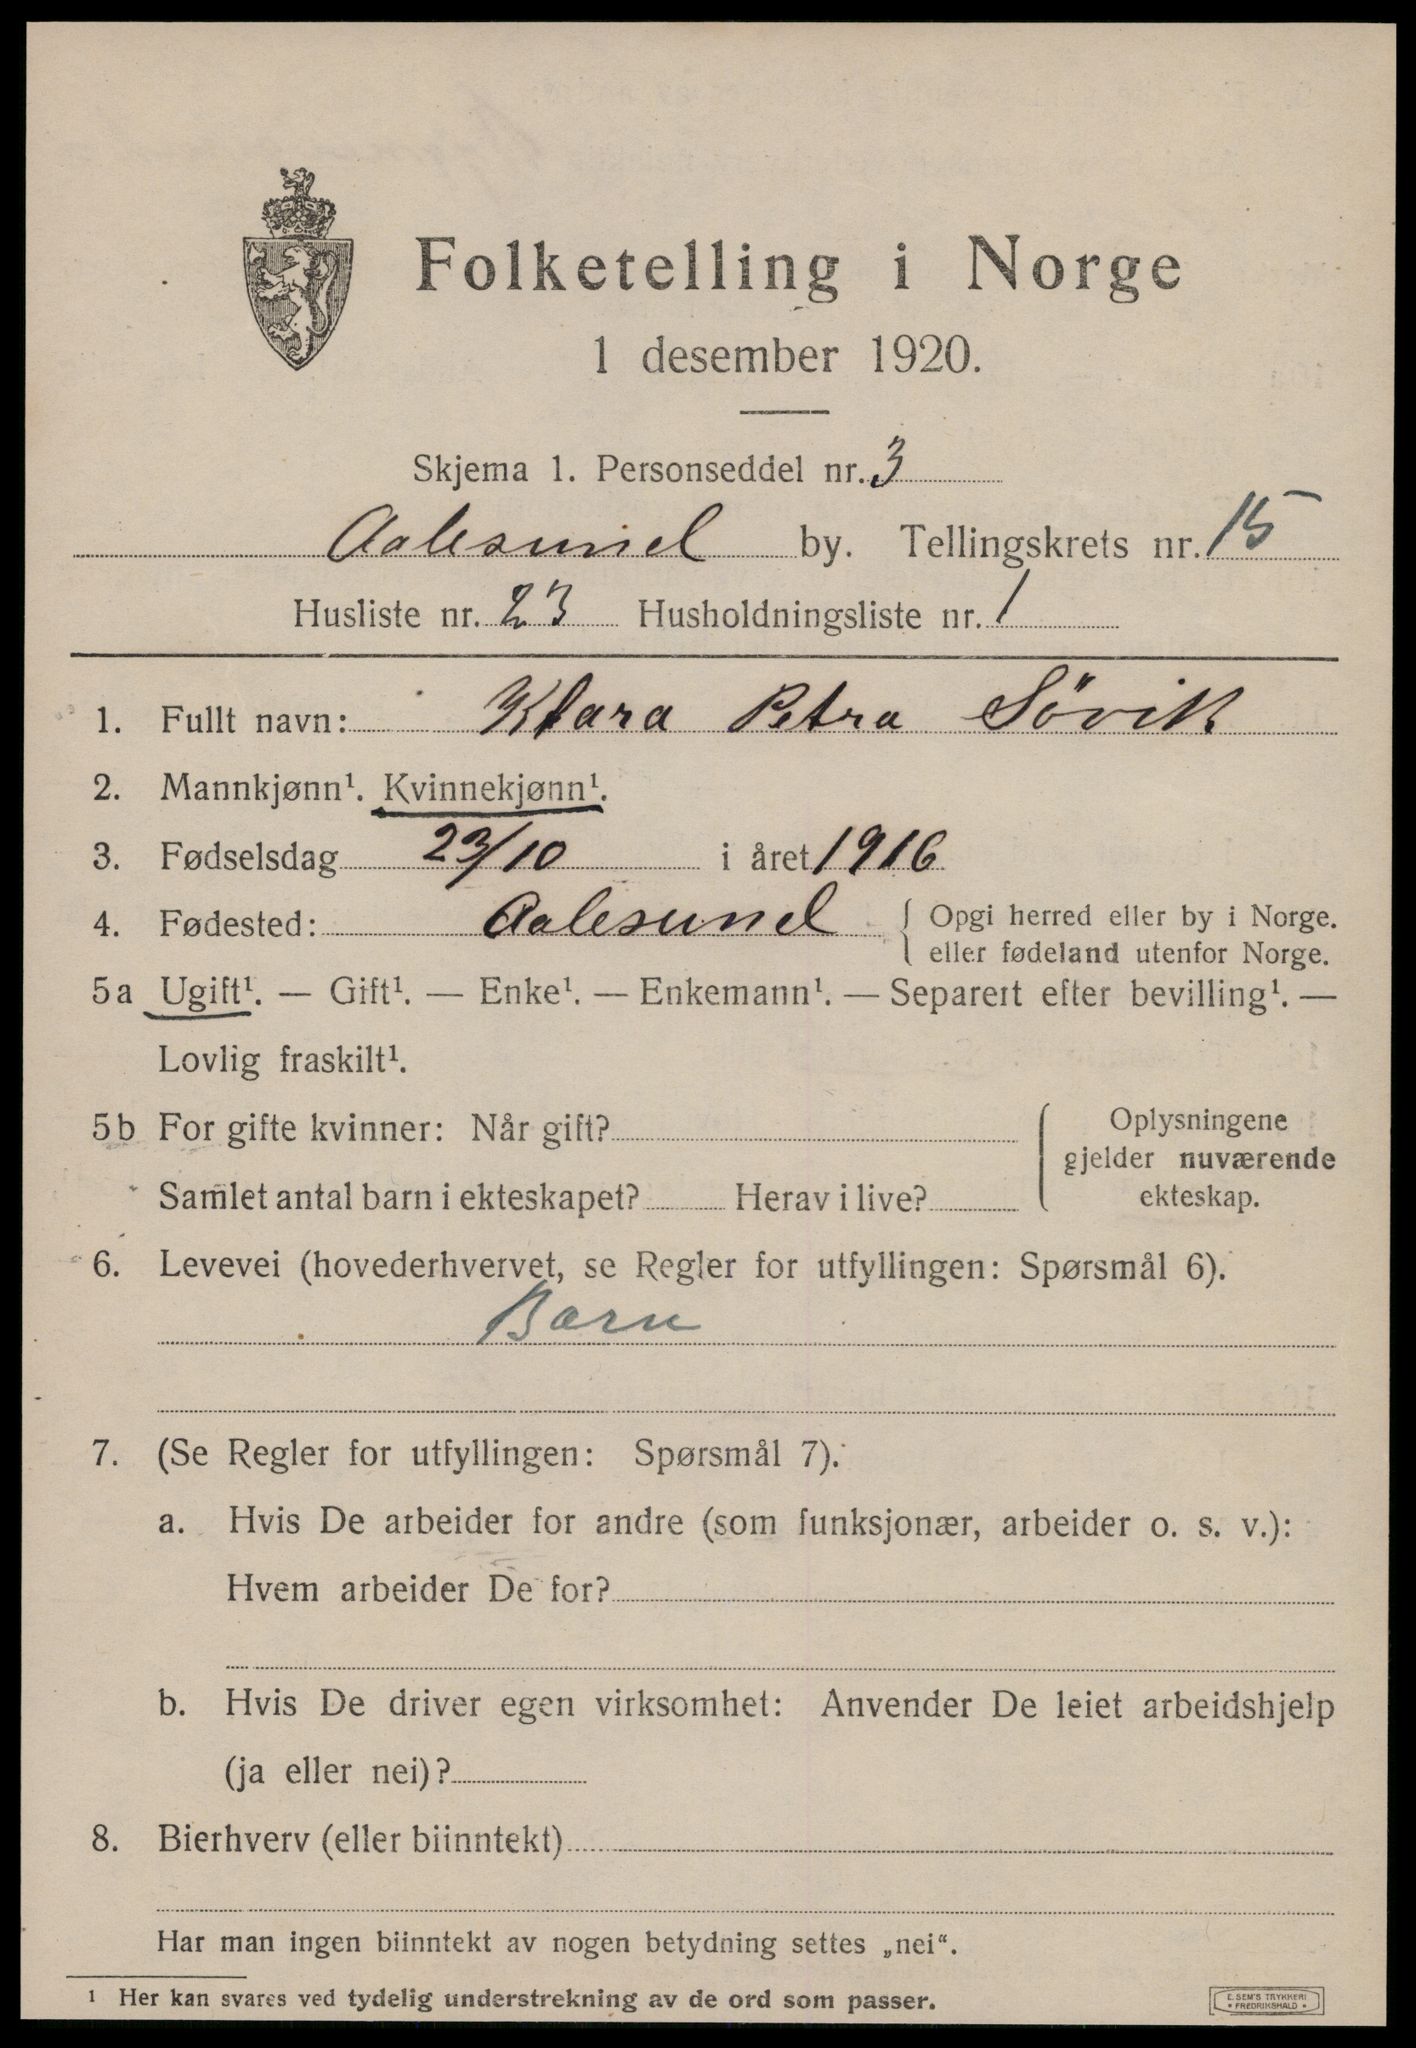 Folketelling i Norge
1 desember 1920.
Skjema 1. Personseddel nr. 3
Aalesund by. Tellingskrets nr. 15
Husliste nr. 23 Husholdningsliste nr. 1
1. Fullt navn: Klara Petra Sövik
2. Mannkjønn¹. Kvinnekjønn¹.
3. Fødselsdag 23/10 i året 1916
4. Fødested: Aalesund { Opgi herred eller by i Norge.
eller fødeland utenfor Norge.
5a Ugift¹. — Gift¹. — Enke¹. — Enkemann¹. — Separert efter bevilling¹. —
Lovlig fraskilt¹.
5b For gifte kvinner: Når gift?
Samlet antal barn i ekteskapet? Herav i live?
Oplysningene
gjelder nuværende
ekteskap.
6. Levevei (hovederhvervet, se Regler for utfyllingen: Spørsmål 6).
Barn
7. (Se Regler for utfyllingen: Spørsmål 7).
a. Hvis De arbeider for andre (som funksjonær, arbeider o. s. v.):
Hvem arbeider De for?
b. Hvis De driver egen virksomhet: Anvender De leiet arbeidshjelp
(ja eller nei)?
8. Bierhverv (eller biinntekt)
Har man ingen biinntekt av nogen betydning settes „nei“.
¹ Her kan svares ved tydelig understrekning av de ord som passer.
E. SEM'S TRYKKERI
• FREDRIKSHALD •